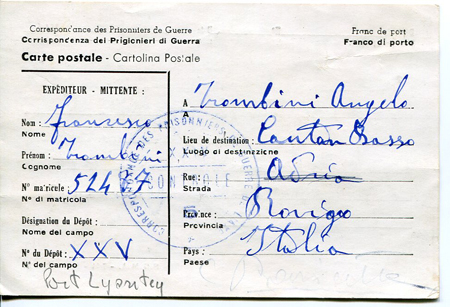 Correspondance des Prisonniers de Guerre
Corrispondenza dei Prigionieri di Guerra
Franc de port
Franco di porto
Carte postale - Cartolina Postale
EXPÉDITEUR - MITTENTE :
Nom : Francesco
Nome
Prénom : Trombini
Cognome
N° m/ricele : 52487
N° di matricola
Désignation du Dépôt :
Nome del campo
N° du Dépôt : XXV
N° del campo
Port Lyautey
A Trombini Angelo
A
Lieu de destination :
Luogo di destinazione
Rue : Adria
Strada
Province : Rovigo
Provincia
Pays : Italia
Paese